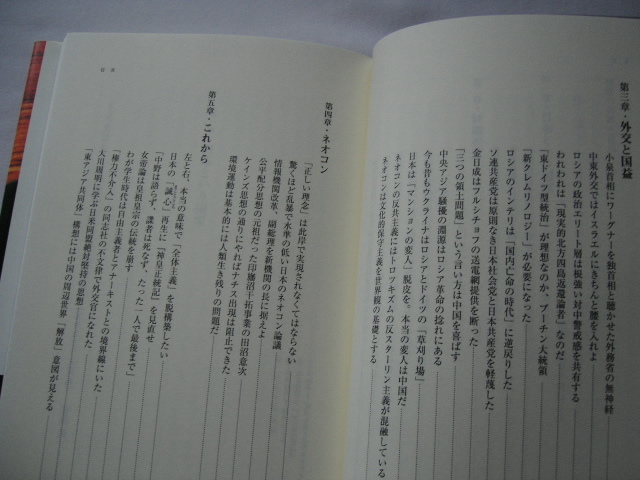 第三章・外交と国益
小泉首相にワーグナーを独首相と聴かせた外務省の無神経
中東外交ではイスラエルにきちんと腰を入れよ
ロシアの政治エリート層は根強い対中警戒感を共有する
われわれは「現実的北方四島返還論者」なのだ
「東ドイツ型統治」が理想なのか、プーチン大統領
「新クレムリノロジー」が必要になった
ロシアのインテリは「国内亡命の時代」に逆戻りした
ソ連共産党は原則なき日本社会党と日本共産党を軽蔑した
金日成はフルシチョフの送電網提供を断った
「三つの領土問題」という言い方は中国を喜ばす
中央アジア騒擾の淵源はロシア革命の捻れにある
今も昔もウクライナはロシアとドイツの「草刈り場」
日本は「マンションの変人」脱皮を。本当の変人は中国だ
ネオコンの反共主義にはトロツキズムの反スターリン主義が混融している
ネオコンは文化的保守主義を世界観の基礎とする
第四章・ネオコン
「正しい理念」は此岸で実現されなくてはならない
驚くほど乱暴で水準の低い日本のネオコン論議
情報機関改革、副総理を新機関の長に据えよ
公平配分思想の元祖だった印旛沼干拓事業の田沼意次
ケインズ思想の通りにやればナチス出現は阻止できた
環境運動は基本的には人類生き残りの問題だ
第五章・これから
左と右、本当の意味で「全体主義」を脱構築したい
日本の「誠心」再生に『神皇正統記』を見直せ
「中野は語らず」、諜者は死なず、たった一人で最後まで」
女帝論は皇祖皇宗の伝統を崩す
わが学生時代は自由主義者とアナーキストとの境界線にいた
「権力不介入」の同志社の不文律で外交官になれた
大川周明に学ぶ日米同盟絶対堅持の思想
「東アジア共同体」構想には中国の周辺世界「解放」意図が見える
目次